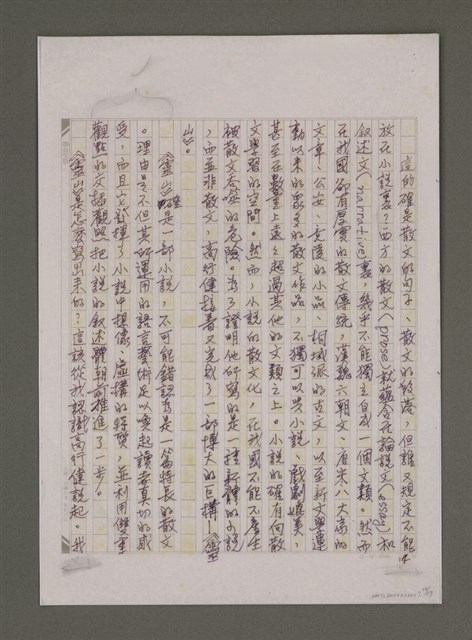 這的確是散文的句子、散文的段落，但誰又規定不能
放在小說裏？西方的散文(prose)歸蘊含在論說文(essay)和
敘述文(narrative)裏，幾乎不能獨立自成一個文類。然而
在我國卻有厚實的散文傳統，漢魏六朝文、唐宋八大家的
文章、公安、竟陵的小品、桐城派的古文，以至新文學運
動以來的眾多的散文作品，不獨可以與小說、戲劇媲美，
甚至在數量上遠遠超過其他的文類之上。小說的確有向散
文學習的空間。然而，小說的散文化，在我國不能不產生
被散文吞噬的危險。為了證明他所寫的是一種新體的小說
，而並非散文，高行健接著又完成了一部博大的巨構—《靈
山》。
《靈山》確是一部小說，不可能錯認為是一篇特長的散文
。理由是不但其所運用的語言藝術足以喚起讀者真切的感
受，而且它發揮了小說中想像、虛構的特質，並利用雙重
觀點的交插觀照把小說的敘述體朝前推進了一步。
《靈山》是怎麼寫出來的？這該從我認識高行健說起。我